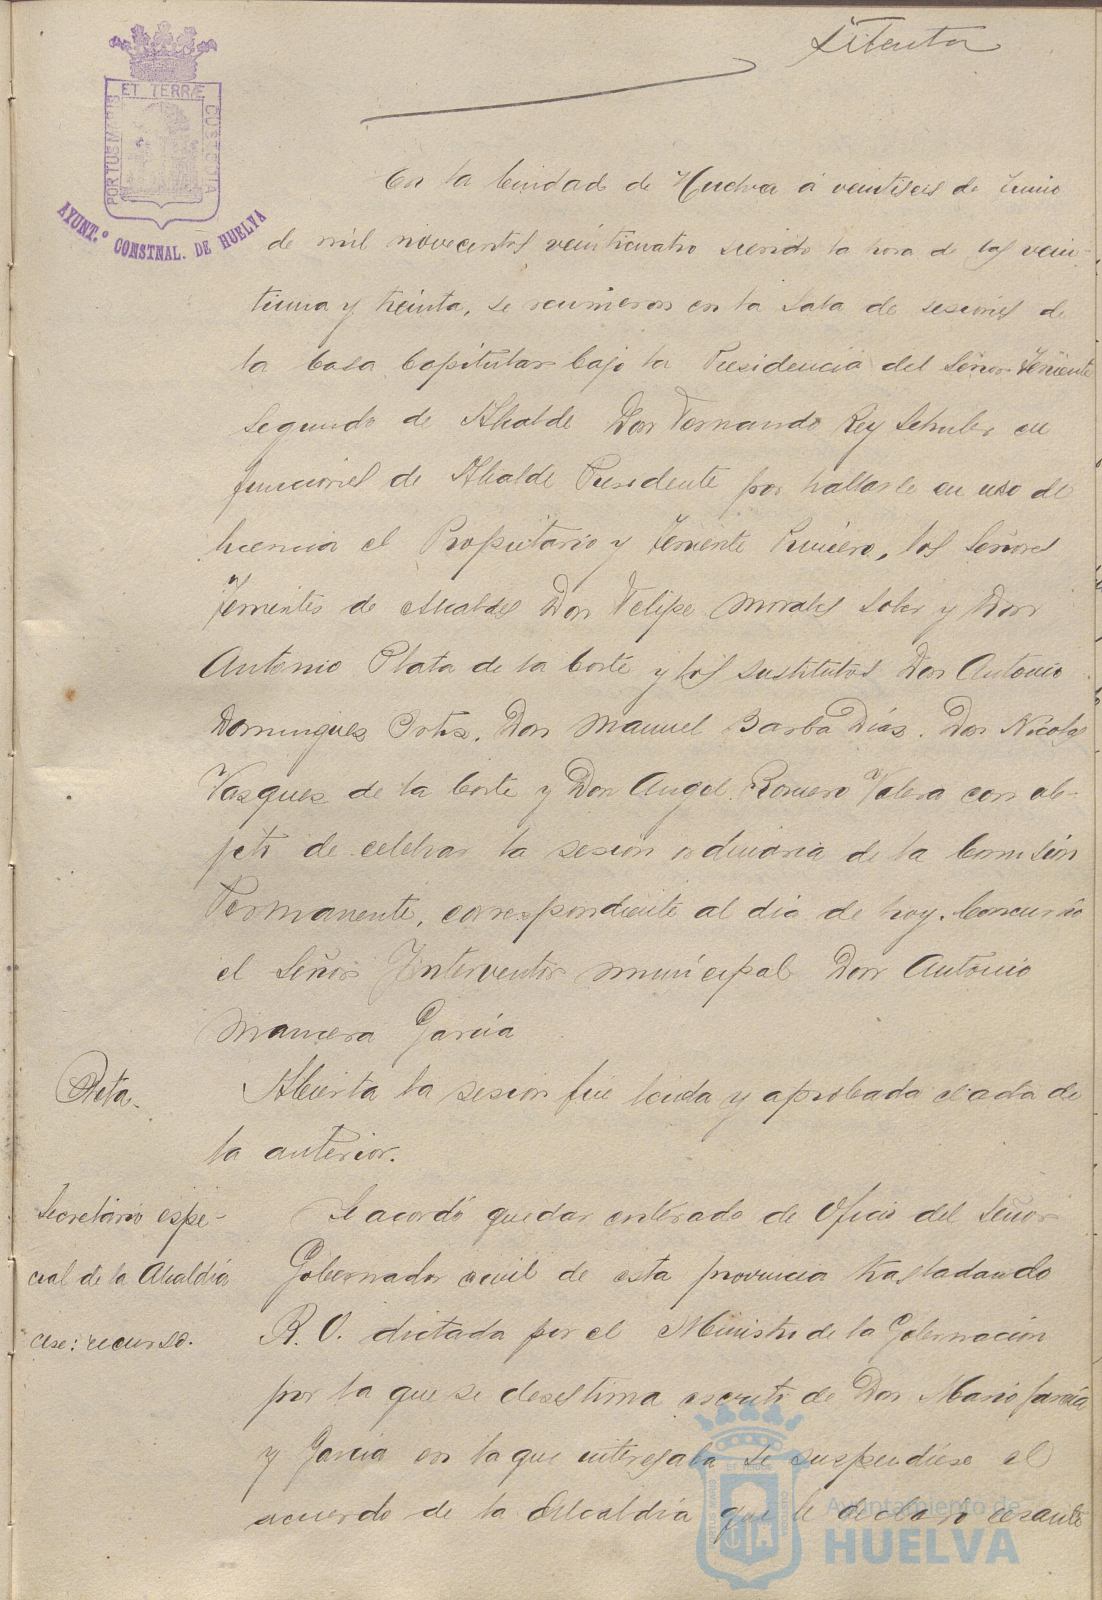 Setenta
ET TERRÆ
PORTUS MARIS
CUSTODIA
AYUNT.º CONSTNAL. DE HUELVA
En la Ciudad de Huelva á veintiseis de Junio
de mil novecientos veinticuatro siendo la hora de las vein-
tiuna y treinta, se reunieron en la Sala de sesiones de
la Casa Capitular bajo la Presidencia del Señor Teniente
Segundo de Alcalde Don Fernando Rey Schuler en
funciones de Alcalde Presidente por hallarse en uso de
licencia el Propietario y Teniente Primero, los Señores
Tenientes de Alcaldes Don Felipe Morales Soler y Don
Antonio Plata de la Corte y los sustitutos Don Antonio
Dominguez Ortiz, Don Manuel Barba Díaz, Don Nicolas
Vazquez de la Corte y Don Angel Romero Valera con ob-
jeto de celebrar la sesion ordinaria de la Comisión
Permanente, correspondiente al dia de hoy. Concurrio
el Señor Interventor municipal Don Antonio
Mancera García
Acta.
Abierta la sesion fué leida y aprobada el acta de
la anterior.
Secretario espe-
cial de la Alcaldía
cese: recurso.
Se acordó quedar enterado de Oficio del Señor
Gobernador civil de esta provincia trasladando
R. O. dictada por el Ministro de la Gobernación
por la que se desestima escrito de Don Mario García
y García en la que interesaba se suspendiese el
acuerdo de la Alcaldía que le declaró cesante
Ayuntamiento de
HUELVA